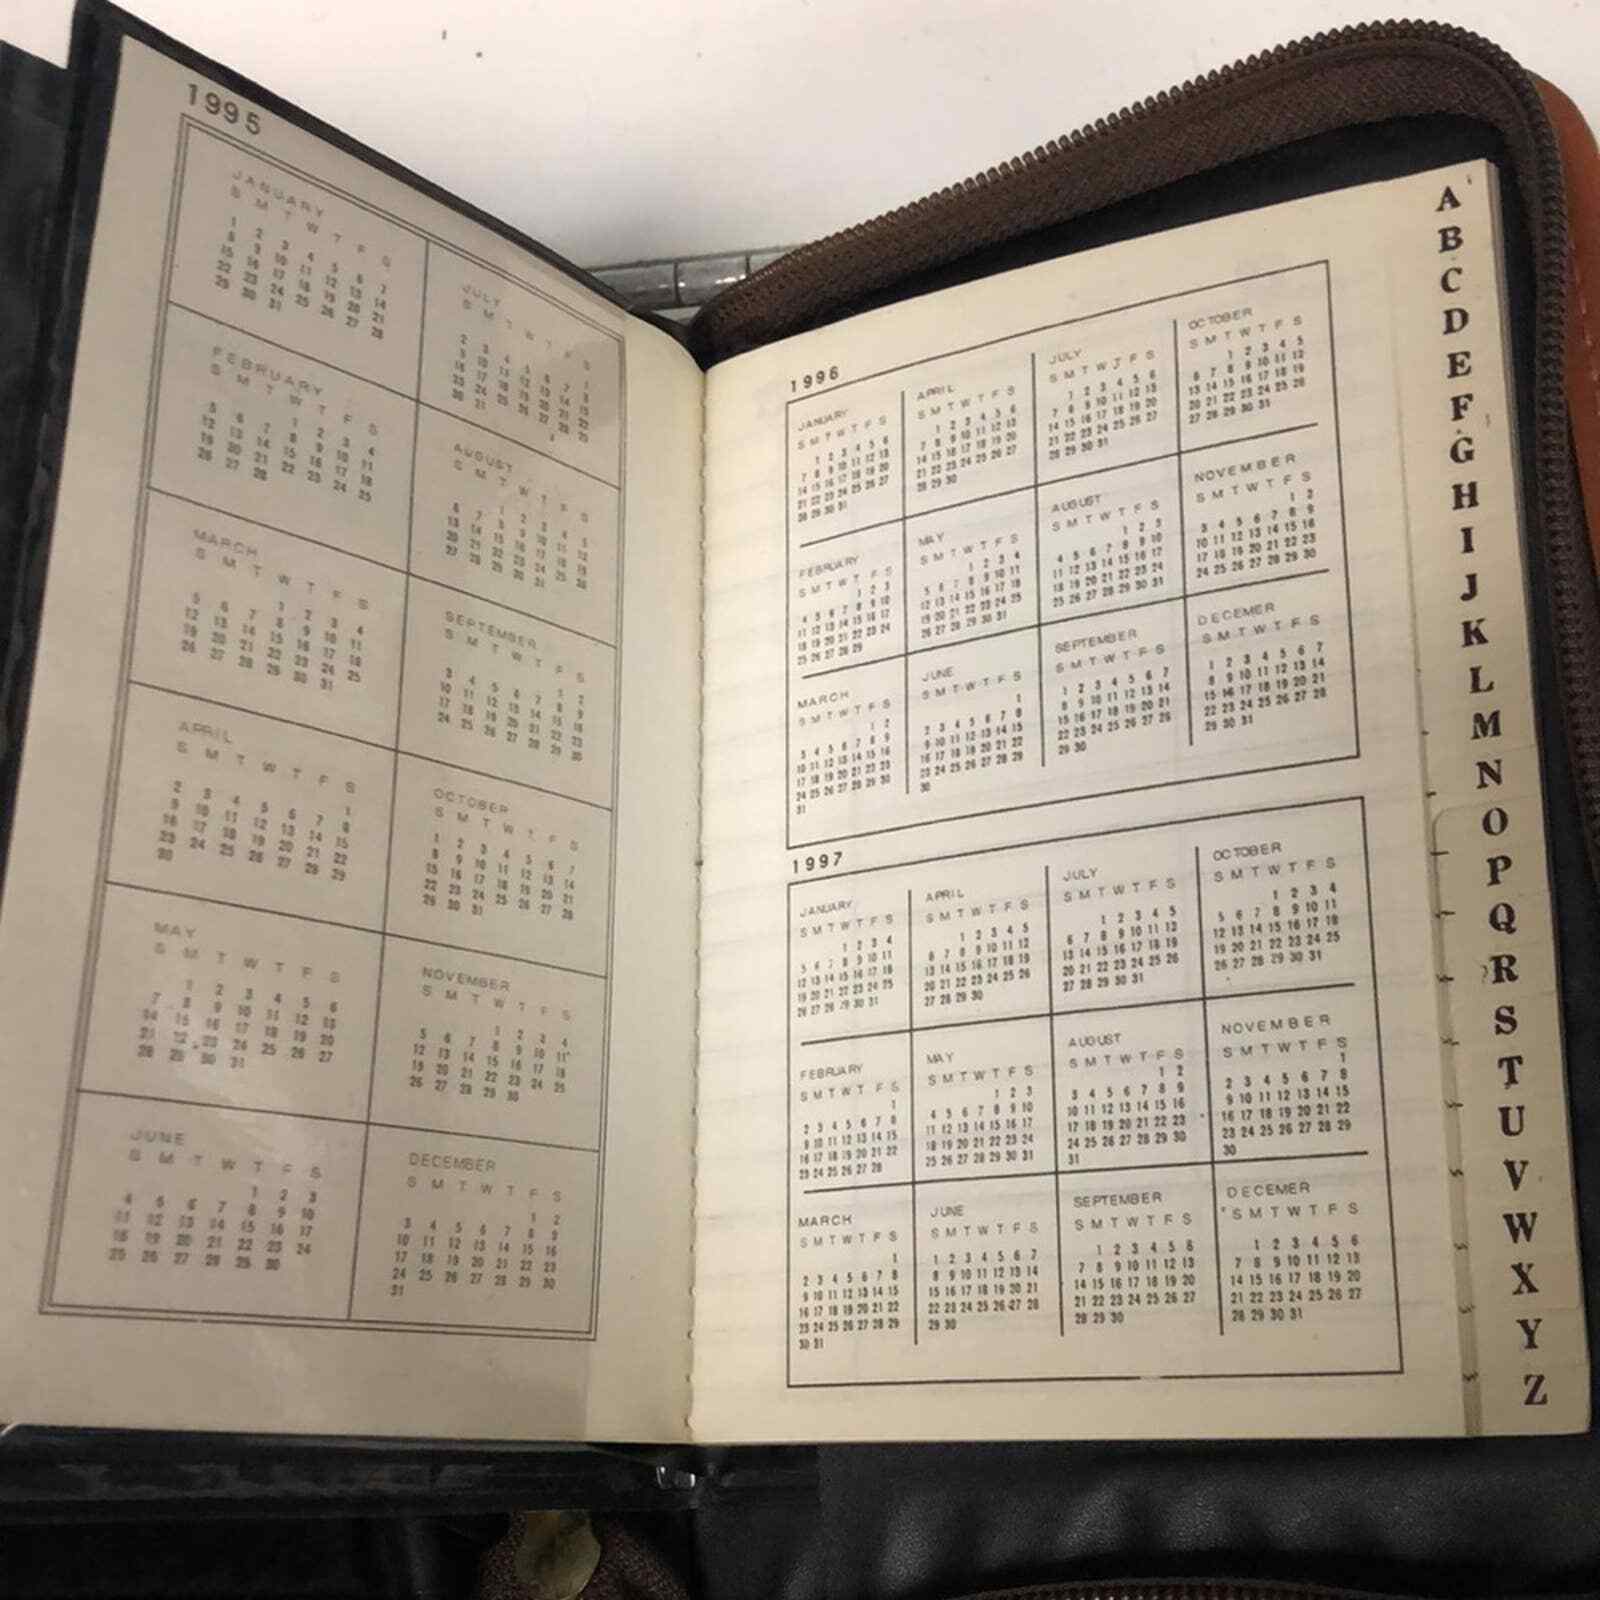 1995
JANUARY
S M T W T F S
1 2 3 4 5 6 7
8 9 10 11 12 13 14
15 16 17 18 19 20 21
22 23 24 25 26 27 28
29 30 31
FEBRUARY
S M T W T F S
1 2 3 4
5 6 7 8 9 10 11
12 13 14 15 16 17 18
19 20 21 22 23 24 25
26 27 28
MARCH
S M T W T F S
1 2 3 4
5 6 7 8 9 10 11
12 13 14 15 16 17 18
19 20 21 22 23 24 25
26 27 28 29 30 31
APRIL
S M T W T F S
1
2 3 4 5 6 7 8
9 10 11 12 13 14 15
16 17 18 19 20 21 22
23 24 25 26 27 28 29
30
MAY
S M T W T F S
1 2 3 4 5 6
7 8 9 10 11 12 13
14 15 16 17 18 19 20
21 22 23 24 25 26 27
28 29 30 31
JUNE
S M T W T F S
1 2 3
4 5 6 7 8 9 10
11 12 13 14 15 16 17
18 19 20 21 22 23 24
25 26 27 28 29 30
JULY
S M T W T F S
1
2 3 4 5 6 7 8
9 10 11 12 13 14 15
16 17 18 19 20 21 22
23 24 25 26 27 28 29
30 31
AUGUST
S M T W T F S
1 2 3 4 5
6 7 8 9 10 11 12
13 14 15 16 17 18 19
20 21 22 23 24 25 26
27 28 29 30 31
SEPTEMBER
S M T W T F S
1 2
3 4 5 6 7 8 9
10 11 12 13 14 15 16
17 18 19 20 21 22 23
24 25 26 27 28 29 30
OCTOBER
S M T W T F S
1 2 3 4 5 6 7
8 9 10 11 12 13 14
15 16 17 18 19 20 21
22 23 24 25 26 27 28
29 30 31
NOVEMBER
S M T W T F S
1 2 3 4
5 6 7 8 9 10 11
12 13 14 15 16 17 18
19 20 21 22 23 24 25
26 27 28 29 30
DECEMBER
S M T W T F S
1 2
3 4 5 6 7 8 9
10 11 12 13 14 15 16
17 18 19 20 21 22 23
24 25 26 27 28 29 30
31
1996
JANUARY
S M T W T F S
1 2 3 4 5 6
7 8 9 10 11 12 13
14 15 16 17 18 19 20
21 22 23 24 25 26 27
28 29 30 31
FEBRUARY
S M T W T F S
1 2 3
4 5 6 7 8 9 10
11 12 13 14 15 16 17
18 19 20 21 22 23 24
25 26 27 28 29
MARCH
S M T W T F S
1 2
3 4 5 6 7 8 9
10 11 12 13 14 15 16
17 18 19 20 21 22 23
24 25 26 27 28 29 30
31
APRIL
S M T W T F S
1 2 3 4 5 6
7 8 9 10 11 12 13
14 15 16 17 18 19 20
21 22 23 24 25 26 27
28 29 30
MAY
S M T W T F S
1 2 3 4
5 6 7 8 9 10 11
12 13 14 15 16 17 18
19 20 21 22 23 24 25
26 27 28 29 30 31
JUNE
S M T W T F S
1
2 3 4 5 6 7 8
9 10 11 12 13 14 15
16 17 18 19 20 21 22
23 24 25 26 27 28 29
30
JULY
S M T W T F S
1 2 3 4 5 6
7 8 9 10 11 12 13
14 15 16 17 18 19 20
21 22 23 24 25 26 27
28 29 30 31
AUGUST
S M T W T F S
1 2 3
4 5 6 7 8 9 10
11 12 13 14 15 16 17
18 19 20 21 22 23 24
25 26 27 28 29 30 31
SEPTEMBER
S M T W T F S
1 2 3 4 5 6 7
8 9 10 11 12 13 14
15 16 17 18 19 20 21
22 23 24 25 26 27 28
29 30
OCTOBER
S M T W T F S
1 2 3 4 5
6 7 8 9 10 11 12
13 14 15 16 17 18 19
20 21 22 23 24 25 26
27 28 29 30 31
NOVEMBER
S M T W T F S
1 2
3 4 5 6 7 8 9
10 11 12 13 14 15 16
17 18 19 20 21 22 23
24 25 26 27 28 29 30
DECEMER
S M T W T F S
1 2 3 4 5 6 7
8 9 10 11 12 13 14
15 16 17 18 19 20 21
22 23 24 25 26 27 28
29 30 31
1997
JANUARY
S M T W T F S
1 2 3 4
5 6 7 8 9 10 11
12 13 14 15 16 17 18
19 20 21 22 23 24 25
26 27 28 29 30 31
FEBRUARY
S M T W T F S
1
2 3 4 5 6 7 8
9 10 11 12 13 14 15
16 17 18 19 20 21 22
23 24 25 26 27 28
MARCH
S M T W T F S
1
2 3 4 5 6 7 8
9 10 11 12 13 14 15
16 17 18 19 20 21 22
23 24 25 26 27 28 29
30 31
APRIL
S M T W T F S
1 2 3 4 5
6 7 8 9 10 11 12
13 14 15 16 17 18 19
20 21 22 23 24 25 26
27 28 29 30
MAY
S M T W T F S
1 2 3
4 5 6 7 8 9 10
11 12 13 14 15 16 17
18 19 20 21 22 23 24
25 26 27 28 29 30 31
JUNE
S M T W T F S
1 2 3 4 5 6 7
8 9 10 11 12 13 14
15 16 17 18 19 20 21
22 23 24 25 26 27 28
29 30
JULY
S M T W T F S
1 2 3 4 5
6 7 8 9 10 11 12
13 14 15 16 17 18 19
20 21 22 23 24 25 26
27 28 29 30 31
AUGUST
S M T W T F S
1 2
3 4 5 6 7 8 9
10 11 12 13 14 15 16
17 18 19 20 21 22 23
24 25 26 27 28 29 30
31
SEPTEMBER
S M T W T F S
1 2 3 4 5 6
7 8 9 10 11 12 13
14 15 16 17 18 19 20
21 22 23 24 25 26 27
28 29 30
OCTOBER
S M T W T F S
1 2 3 4
5 6 7 8 9 10 11
12 13 14 15 16 17 18
19 20 21 22 23 24 25
26 27 28 29 30 31
NOVEMBER
S M T W T F S
1
2 3 4 5 6 7 8
9 10 11 12 13 14 15
16 17 18 19 20 21 22
23 24 25 26 27 28 29
30
DECEMER
S M T W T F S
1 2 3 4 5 6
7 8 9 10 11 12 13
14 15 16 17 18 19 20
21 22 23 24 25 26 27
28 29 30 31
A
B
C
D
E
F
G
H
I
J
K
L
M
N
O
P
Q
R
S
T
U
V
W
X
Y
Z